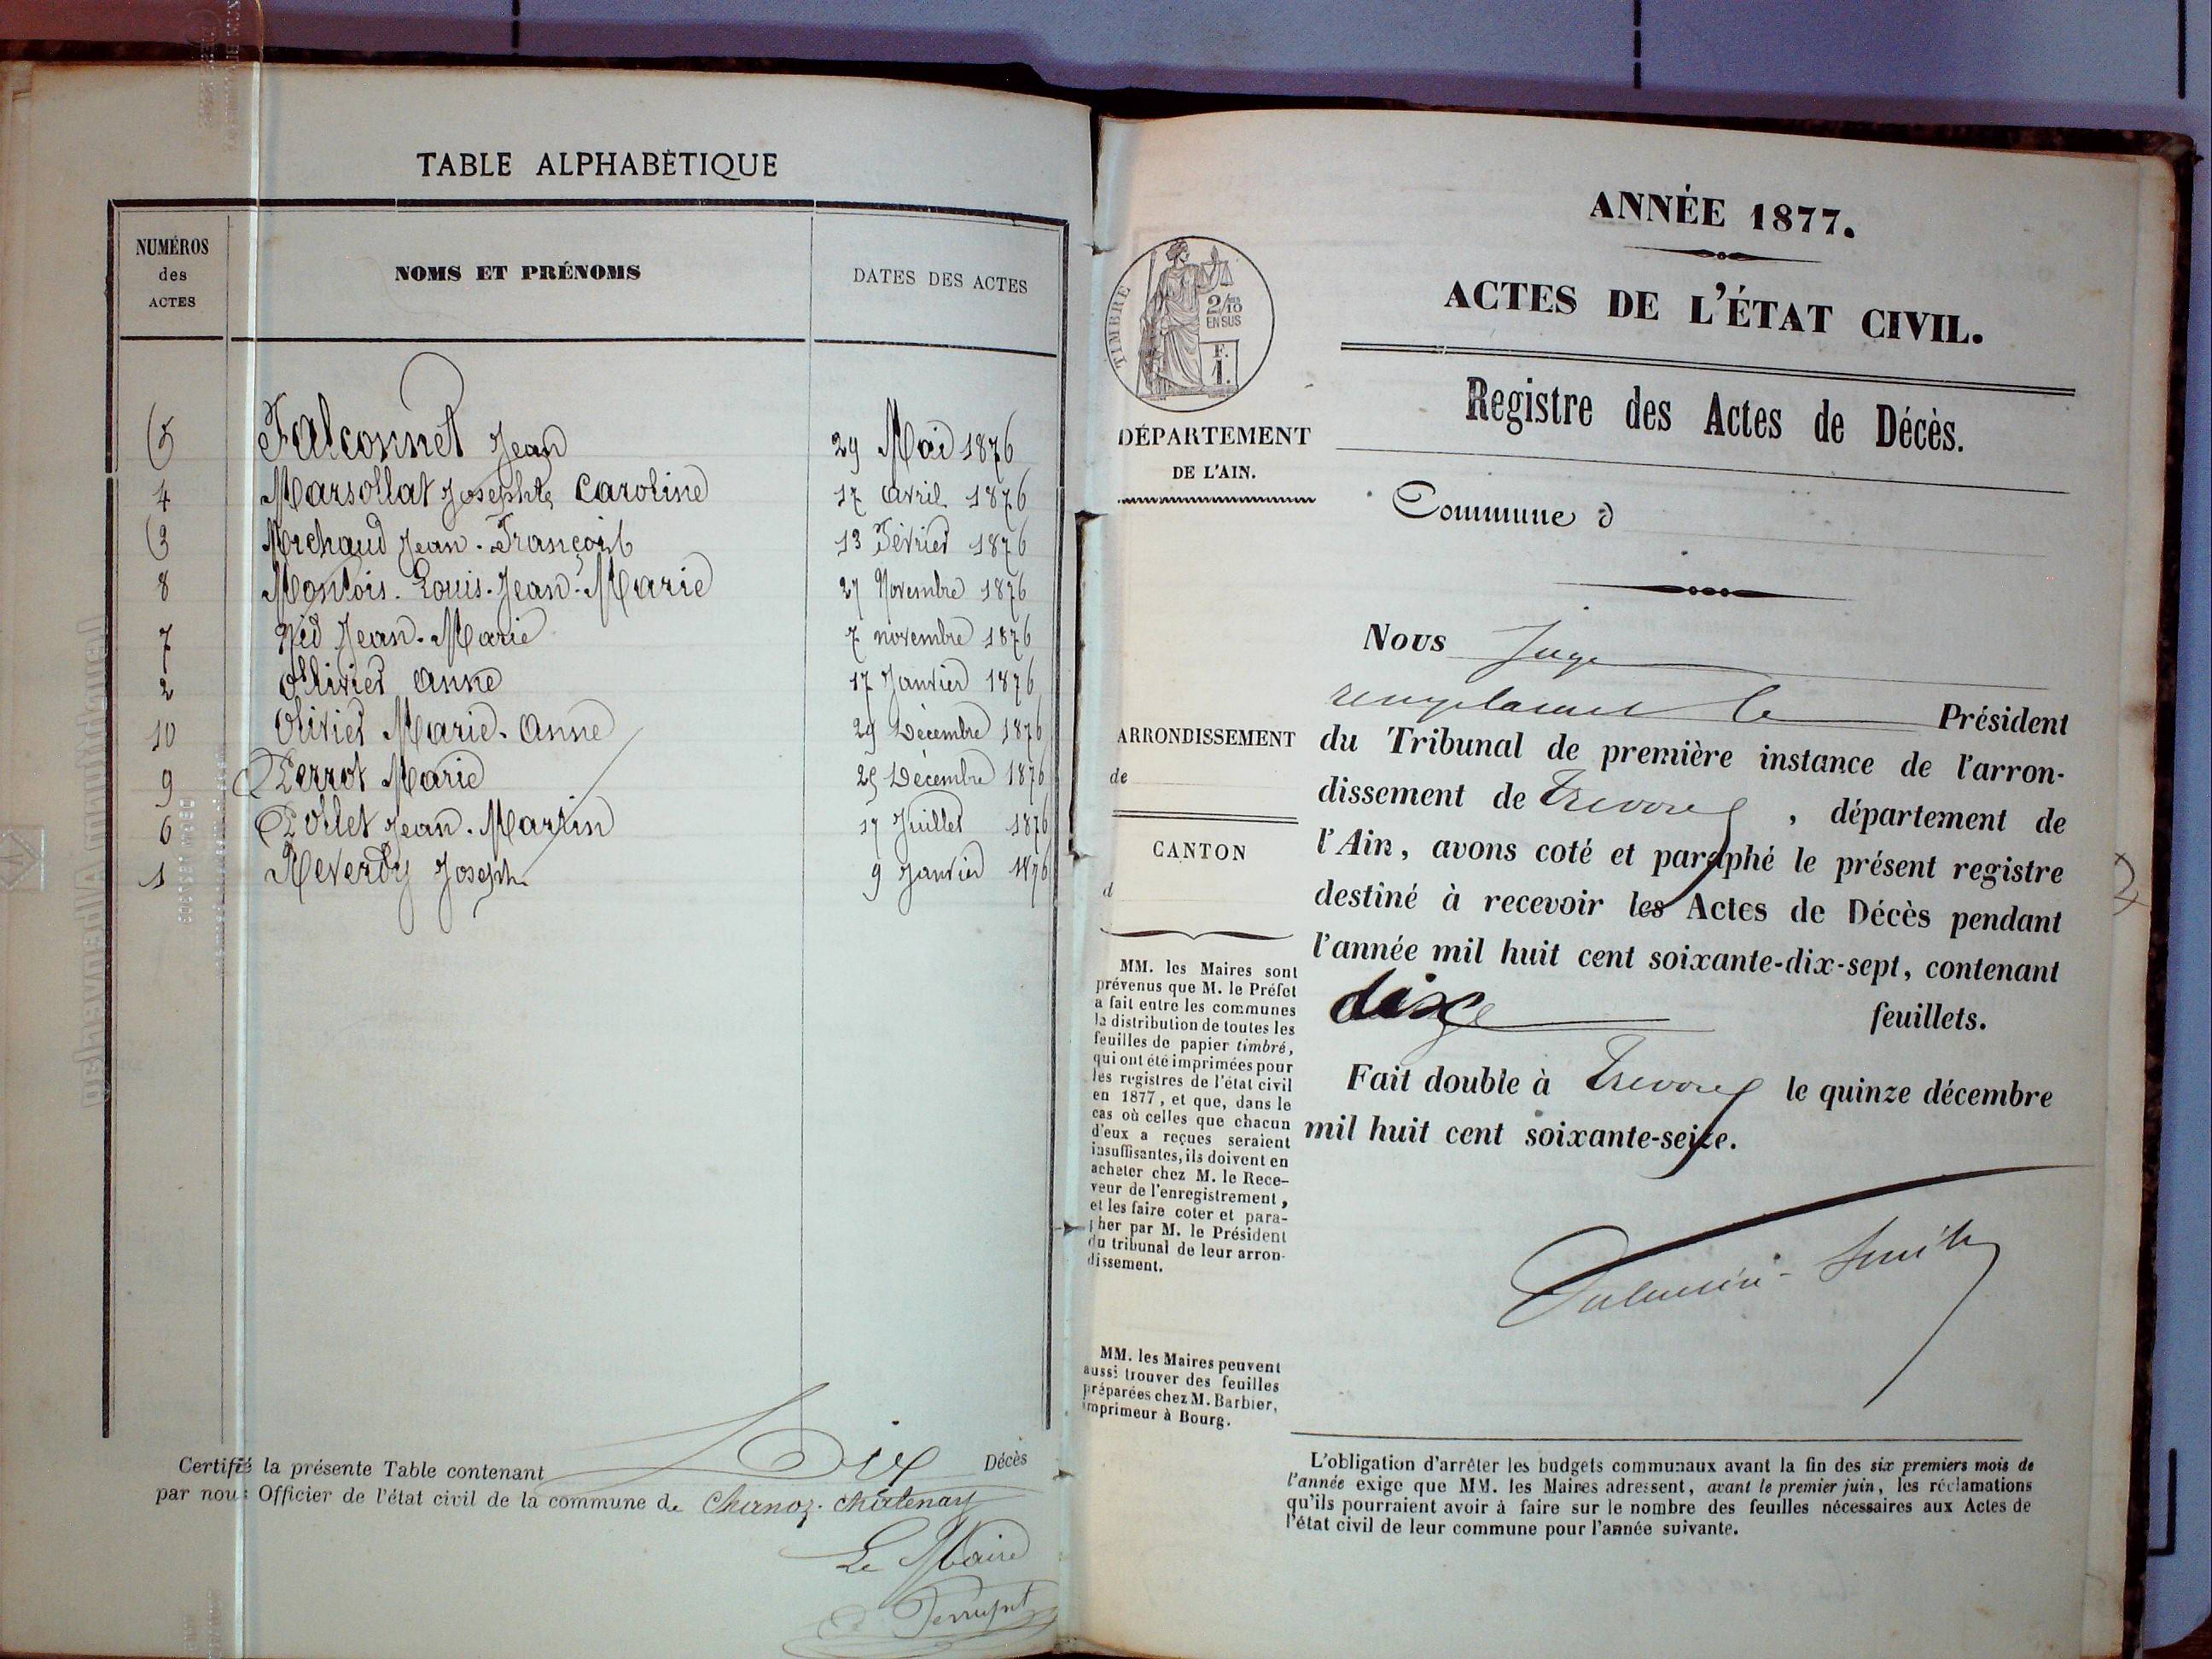 TABLE ALPHABÉTIQUE
NUMÉROS
des
ACTES
NOMS ET PRÉNOMS
DATES DES ACTES
5 Falconnet Jean 29 Mai 1876
4 Marsollat Josephte Caroline 17 avril 1876
3 Michaud Jean-François 13 Février 1876
8 Montois Louis-Jean-Marie 27 Novembre 1876
7 Nid Jean-Marie 7 novembre 1876
2 Ollivier Anne 17 Janvier 1876
10 Olivier Marie-Anne 29 Décembre 1876
9 Perrot Marie 25 Décembre 1876
6 Pollet Jean-Martin 17 Juillet 1876
1 Reverdy Joseph 9 Janvier 1876
Certifié la présente Table contenant Dix Décès
par nous Officier de l'état civil de la commune de
Le Maire
ANNÉE 1877.
ACTES DE L'ÉTAT CIVIL.
Registre des Actes de Décès.
Commune d
TIMBRE
2/10
EN SUS
F.
1.
DÉPARTEMENT
DE L'AIN.
ARRONDISSEMENT
de
CANTON
d
MM. les Maires sont
prévenus que M. le Préfet
a fait entre les communes
la distribution de toutes les
feuilles de papier timbré,
qui ont été imprimées pour
les registres de l'état civil
en 1877, et que, dans le
cas où celles que chacun
d'eux a reçues seraient
insuffisantes, ils doivent en
acheter chez M. le Rece-
veur de l'enregistrement,
et les faire coter et para-
pher par M. le Président
du tribunal de leur arron-
dissement.
MM. les Maires peuvent
aussi trouver des feuilles
préparées chez M. Barbier,
imprimeur à Bourg.
Nous Juge
remplaçant le Président
du Tribunal de première instance de l'arron-
dissement de Trévoux, département de
l'Ain, avons coté et paraphé le présent registre
destiné à recevoir les Actes de Décès pendant
l'année mil huit cent soixante-dix-sept, contenant
dix feuillets.
Fait double à Trévoux le quinze décembre
mil huit cent soixante-seize.
Valentin-Smith
L'obligation d'arrêter les budgets communaux avant la fin des six premiers mois de
l'année exige que MM. les Maires adressent, avant le premier juin, les réclamations
qu'ils pourraient avoir à faire sur le nombre des feuilles nécessaires aux Actes de
l'état civil de leur commune pour l'année suivante.